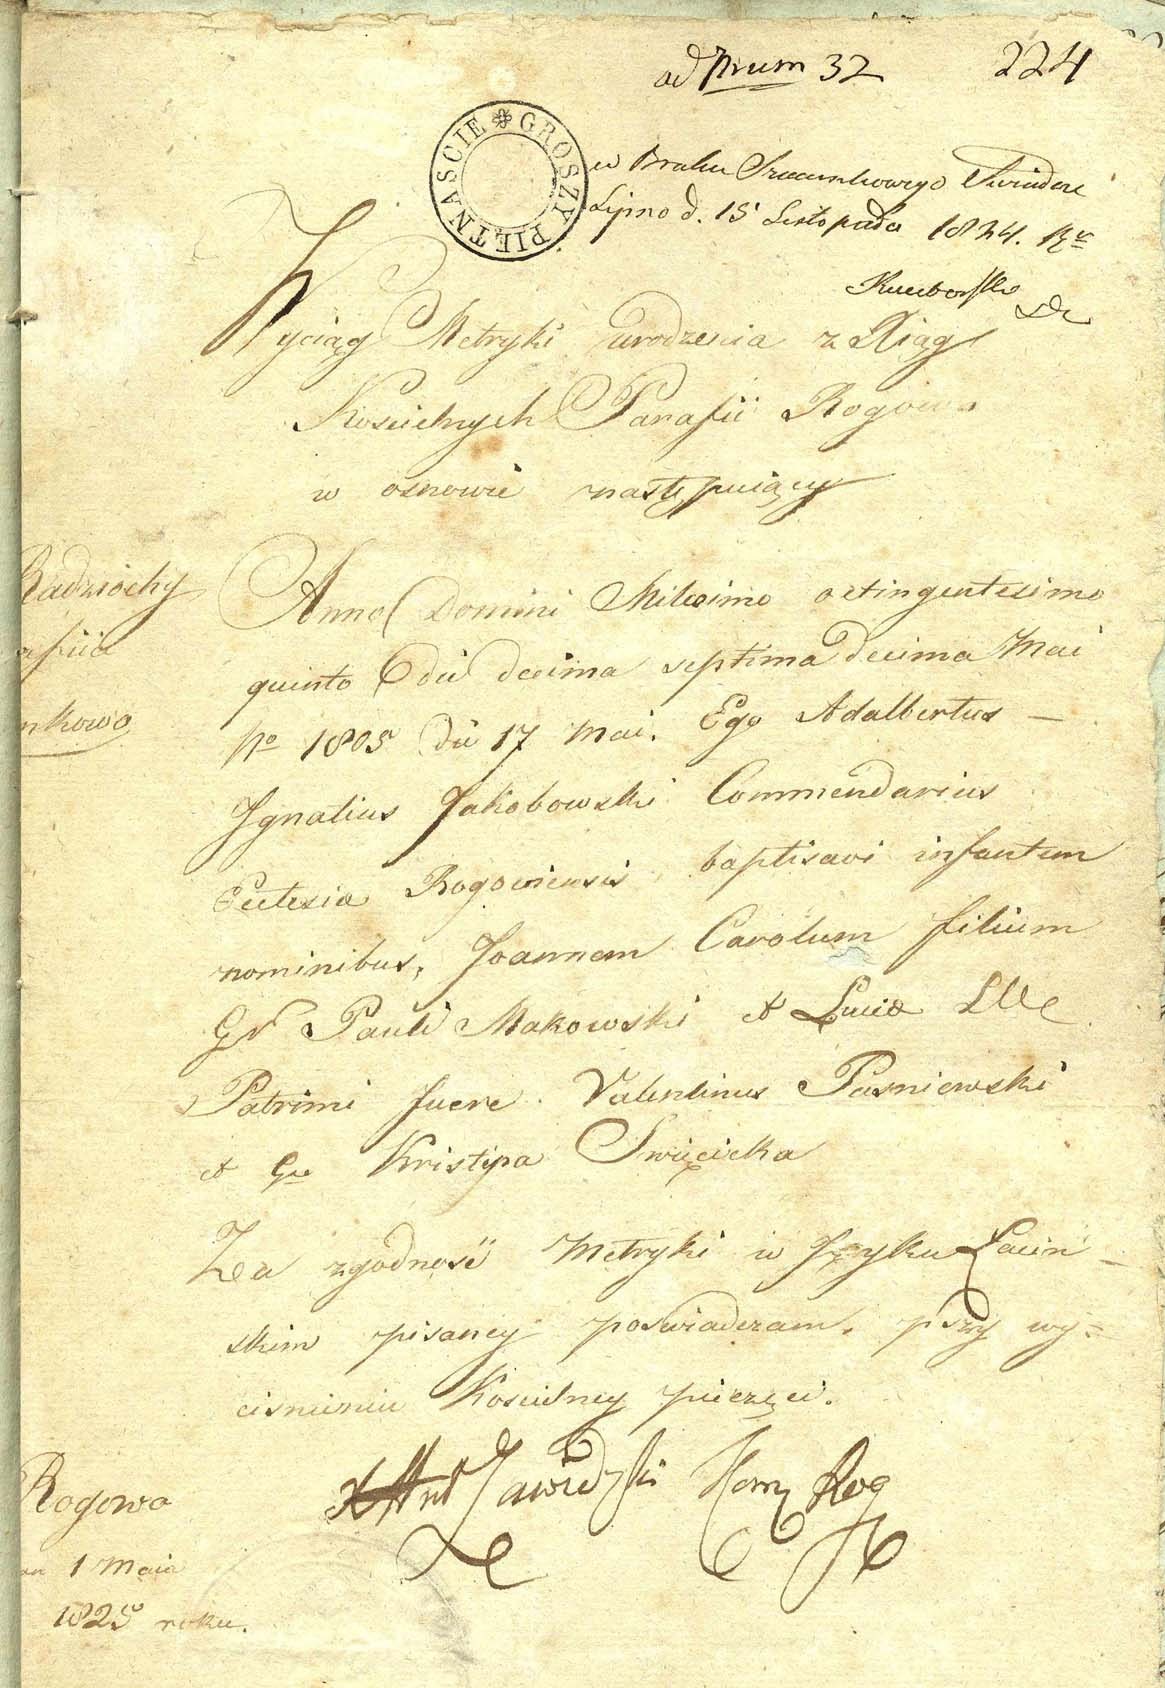 ad Num 32 224
GROSZY PIĘTNAŚCIE
w Braku Szacunkowego
Lipno d. 15 Listopada 1824. Rv
Wyciąg Metryki urodzenia z Xiąg
Kościelnych Parafii Rogowa
w osnowie następuiący
Radziochy
nkowo
Anno Domini Milesimo octingentesimo
quinto die decima septima decima Mai
No 1805 Die 17 Mai. Ego Adalbertus —
Ignatius Jakobowski Commendarius
Eclesia Rogoviensis, baptisavi infantem
nominibus, Joannem Carolum filium
Gr Pauli Makowski et Lucia LMC
Patrimi fuere Valentinus Pasniewski
et Kristina Swięcicka
Za zgodność Metryki w Języku Łaciń-
skim pisaney poświadczam, przy wy=
ciśnieniu Kościelney pieczęci.
X Ant Zawidzki Kom Rog
Rogowo
1 Maia
1825 roku.